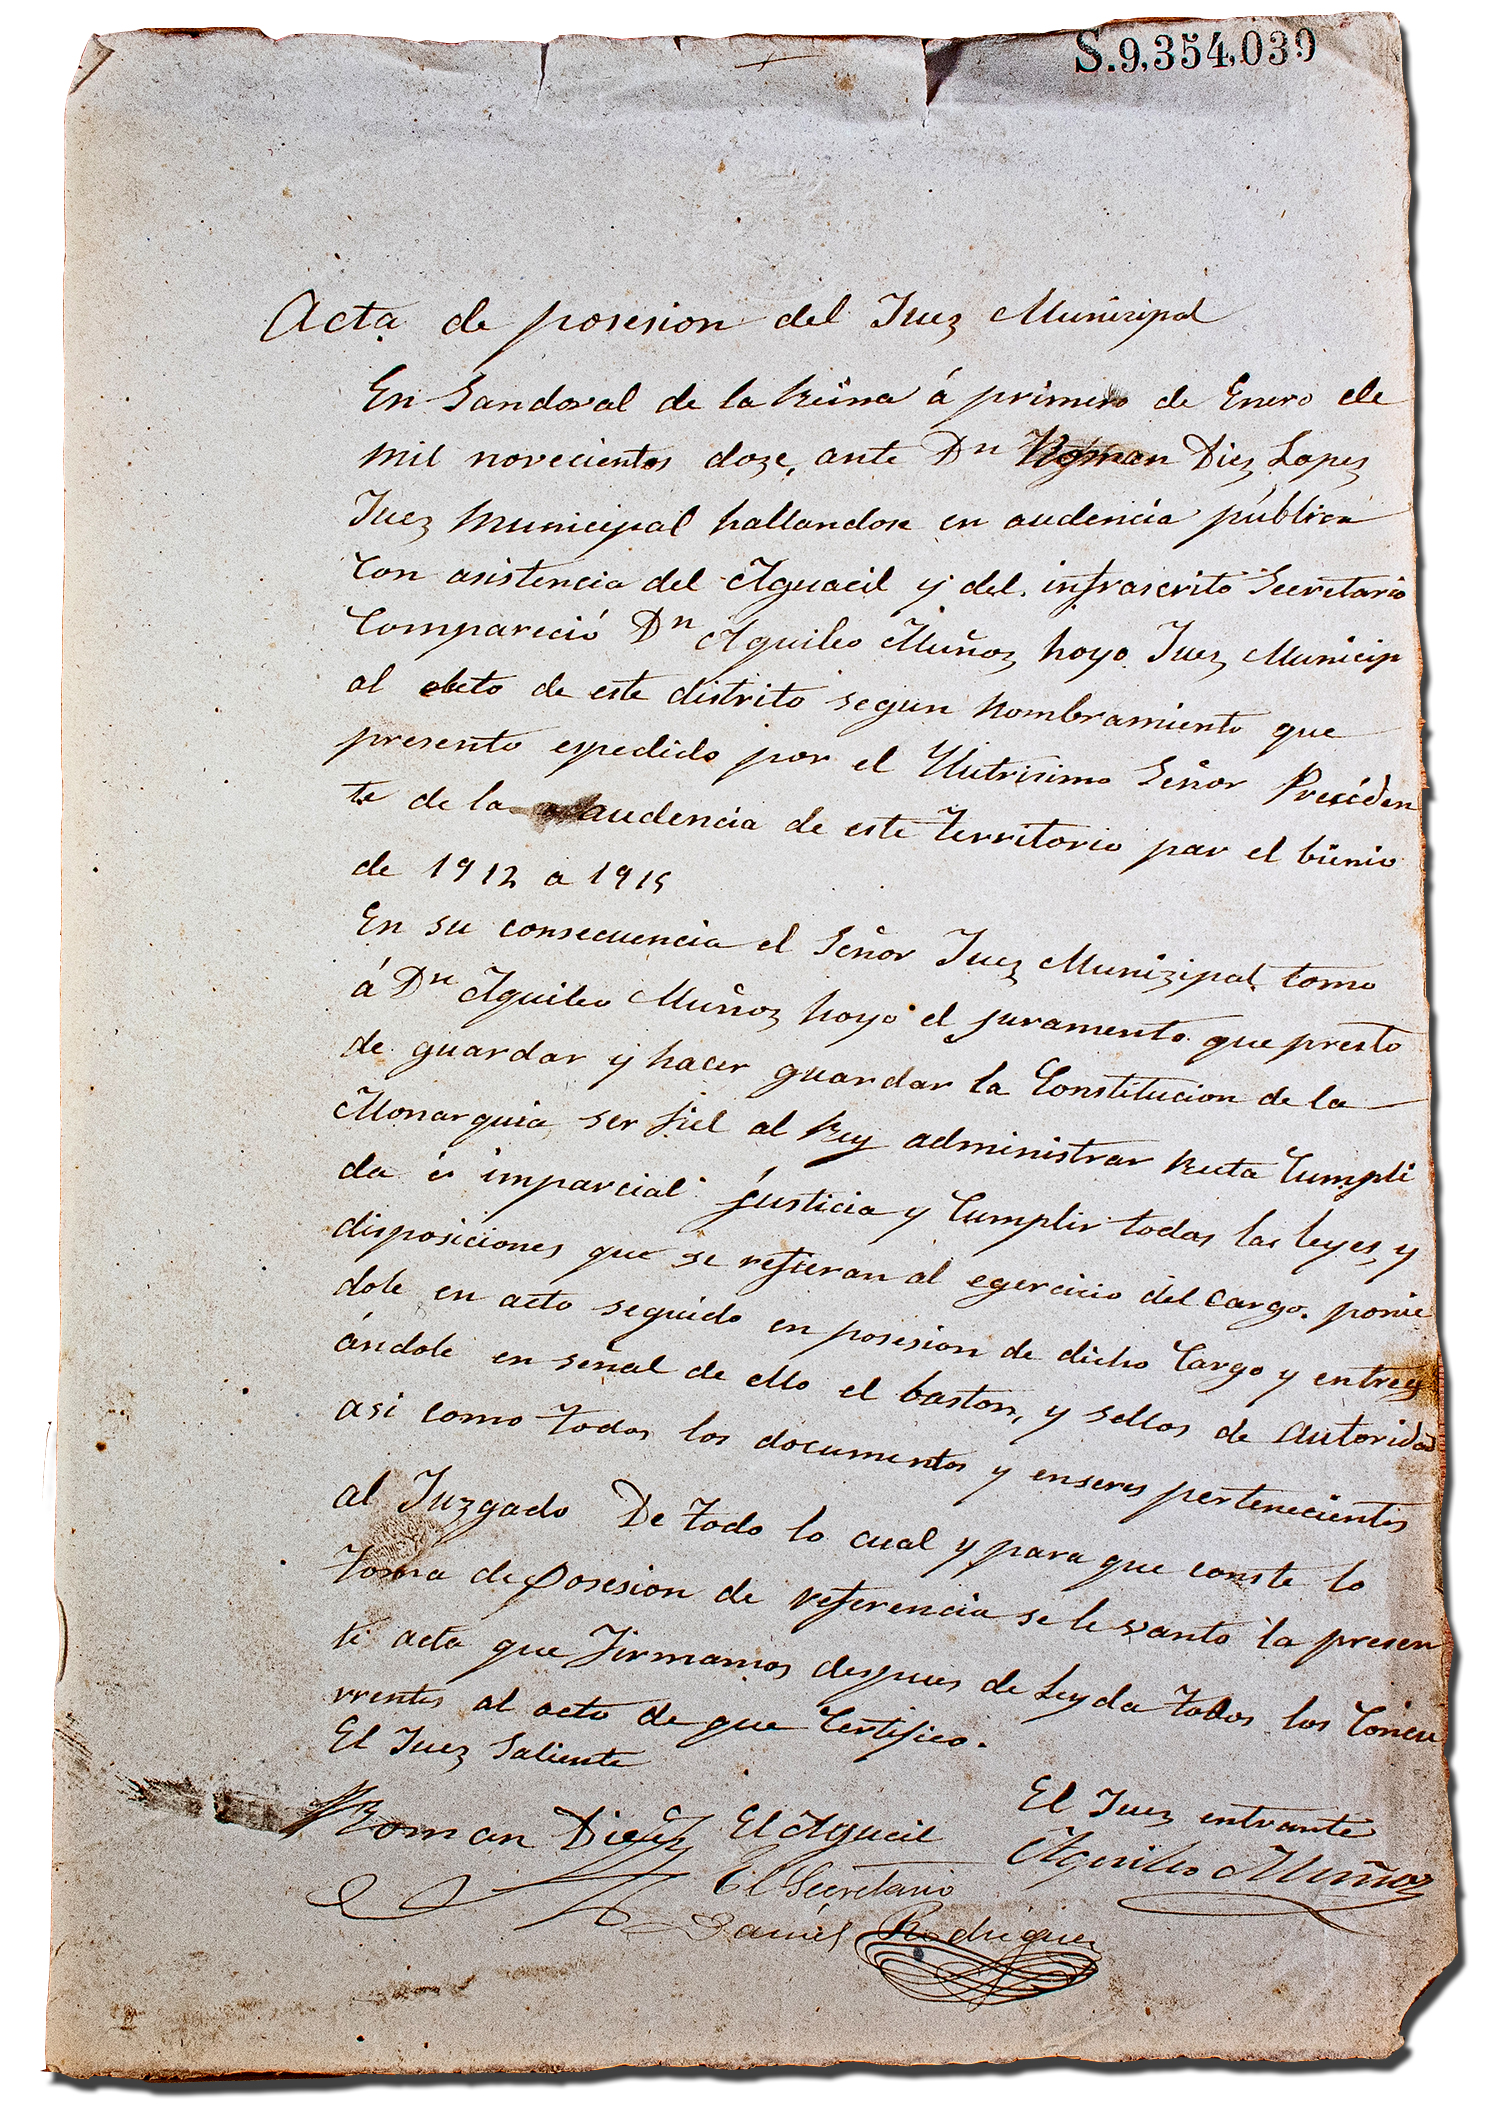 S.9,354,039
Acta de posesion del Juez Munizipal
En Sandoval de la Reina á primero de Enero de
mil novecientos doze, ante Dn Roman Diez Lopez
Juez Municipal hallandose en audencia pública
Con asistencia del Aguacil y del infrascrito Secretario
Compareció Dn Aquileo Muñoz hoyo Juez Municip
al eleto de este distrito segun Nombramiento que
presento epedido por el Ylutrisimo Señor Presiden
te de la audencia de este Territorio par el bienio
de 1912 a 1915
En su consecuencia el Señor Juez Munizipal tomo
á Dn Aquileo Muñoz hoyo el juramento que presto
de guardar y hacer guardar la Constitucion de la
Monarquia, ser fiel al Rey administrar Reta Cumpli
da é imparcial justicia y Cumplir todas las leyes, y
disposiciones que se refieran al egercicio del Cargo. ponie
dole en acto seguido en posesion de dicho Cargo y entreg
ándole en señal de ello el baston, y sellos de autoridad
asi como todos los documentos y enseres pertenecientes
al Juzgado De todo lo cual y para que conste lo
toma de posesion de referencia se le vanto la presen
te acta que Firmamos despues de Leyda todos los Concu
rrentes al acto de que Certifico.
El Juez Saliente
Roman Diez
El Aguacil
El Juez entrante
Aquileo Muñoz
El Secretario
Daniel Rodriguez